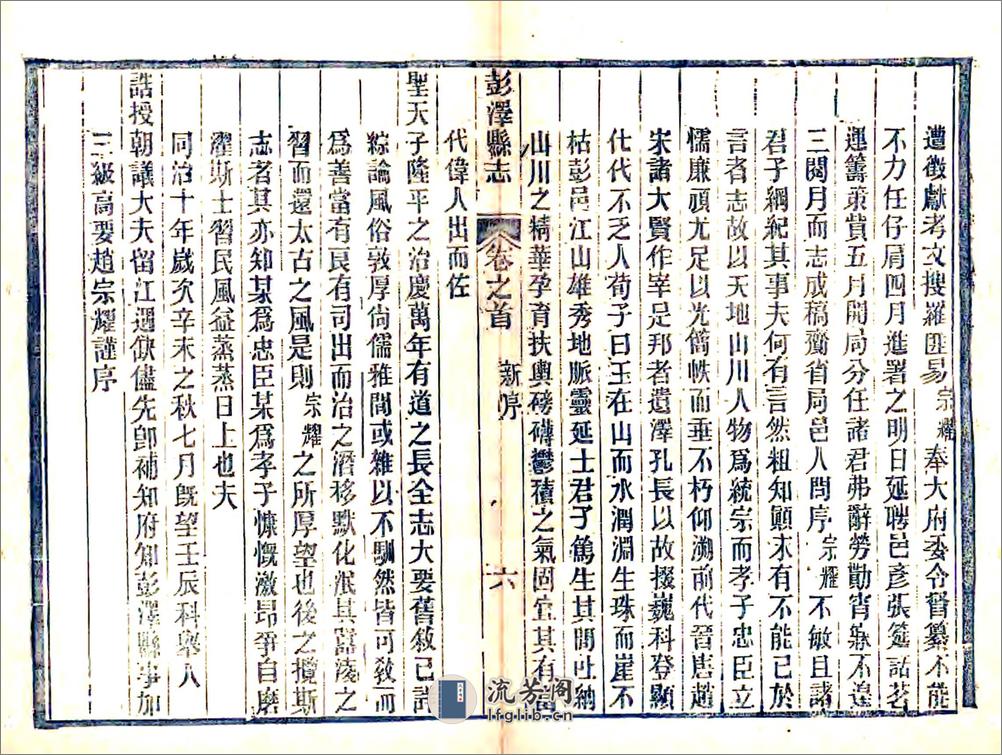 遭徵獻考文搜羅匪易宗耀奉大府委令督纂不能
不力任仔肩四月進署之明日延聘邑彥張筵話茗
運籌策貲五月開局分任諸君弗辭勞勩宵無不遑
三閱月而志成稿齎省局邑人問序宗耀不敏且諸
君子綱紀其事夫何有言然粗知顚末有不能已於
言者志故以天地山川人物爲統宗而孝子忠臣立
懦廉頑尤足以光簡帙而垂不朽仰溯前代晉唐趙
宋諸大賢作宰是邦者遺澤孔長以故掇巍科登顯
仕代不乏人荀子曰玉在山而水潤淵生珠而崖不
枯彭邑江山雄秀地脈靈延士君子篤生其間吐納
山川之精華孕育扶輿磅礴鬱積之氣固宜其有
彭澤縣志
卷之首
新序
六
代偉人出而佐
聖天子隆平之治慶萬年有道之長全志大要舊敘已詳
綜論風俗敦厚尙儒雅間或雜以不馴然皆可敎而
爲善當有良有司出而治之潛移默化泯其囂淩之
習而還太古之風是則宗耀之所厚望也後之攬斯
志者其亦知某爲忠臣某爲孝子慷慨激昂爭自磨
濯斯士習民風益蒸蒸日上也夫
同治十年歲次辛未之秋七月旣望壬辰科舉人
誥授朝議大夫留江遇缺儘先卽補知府知彭澤縣事加
三級高要趙宗耀謹序
流芳閣
lfglib.cn